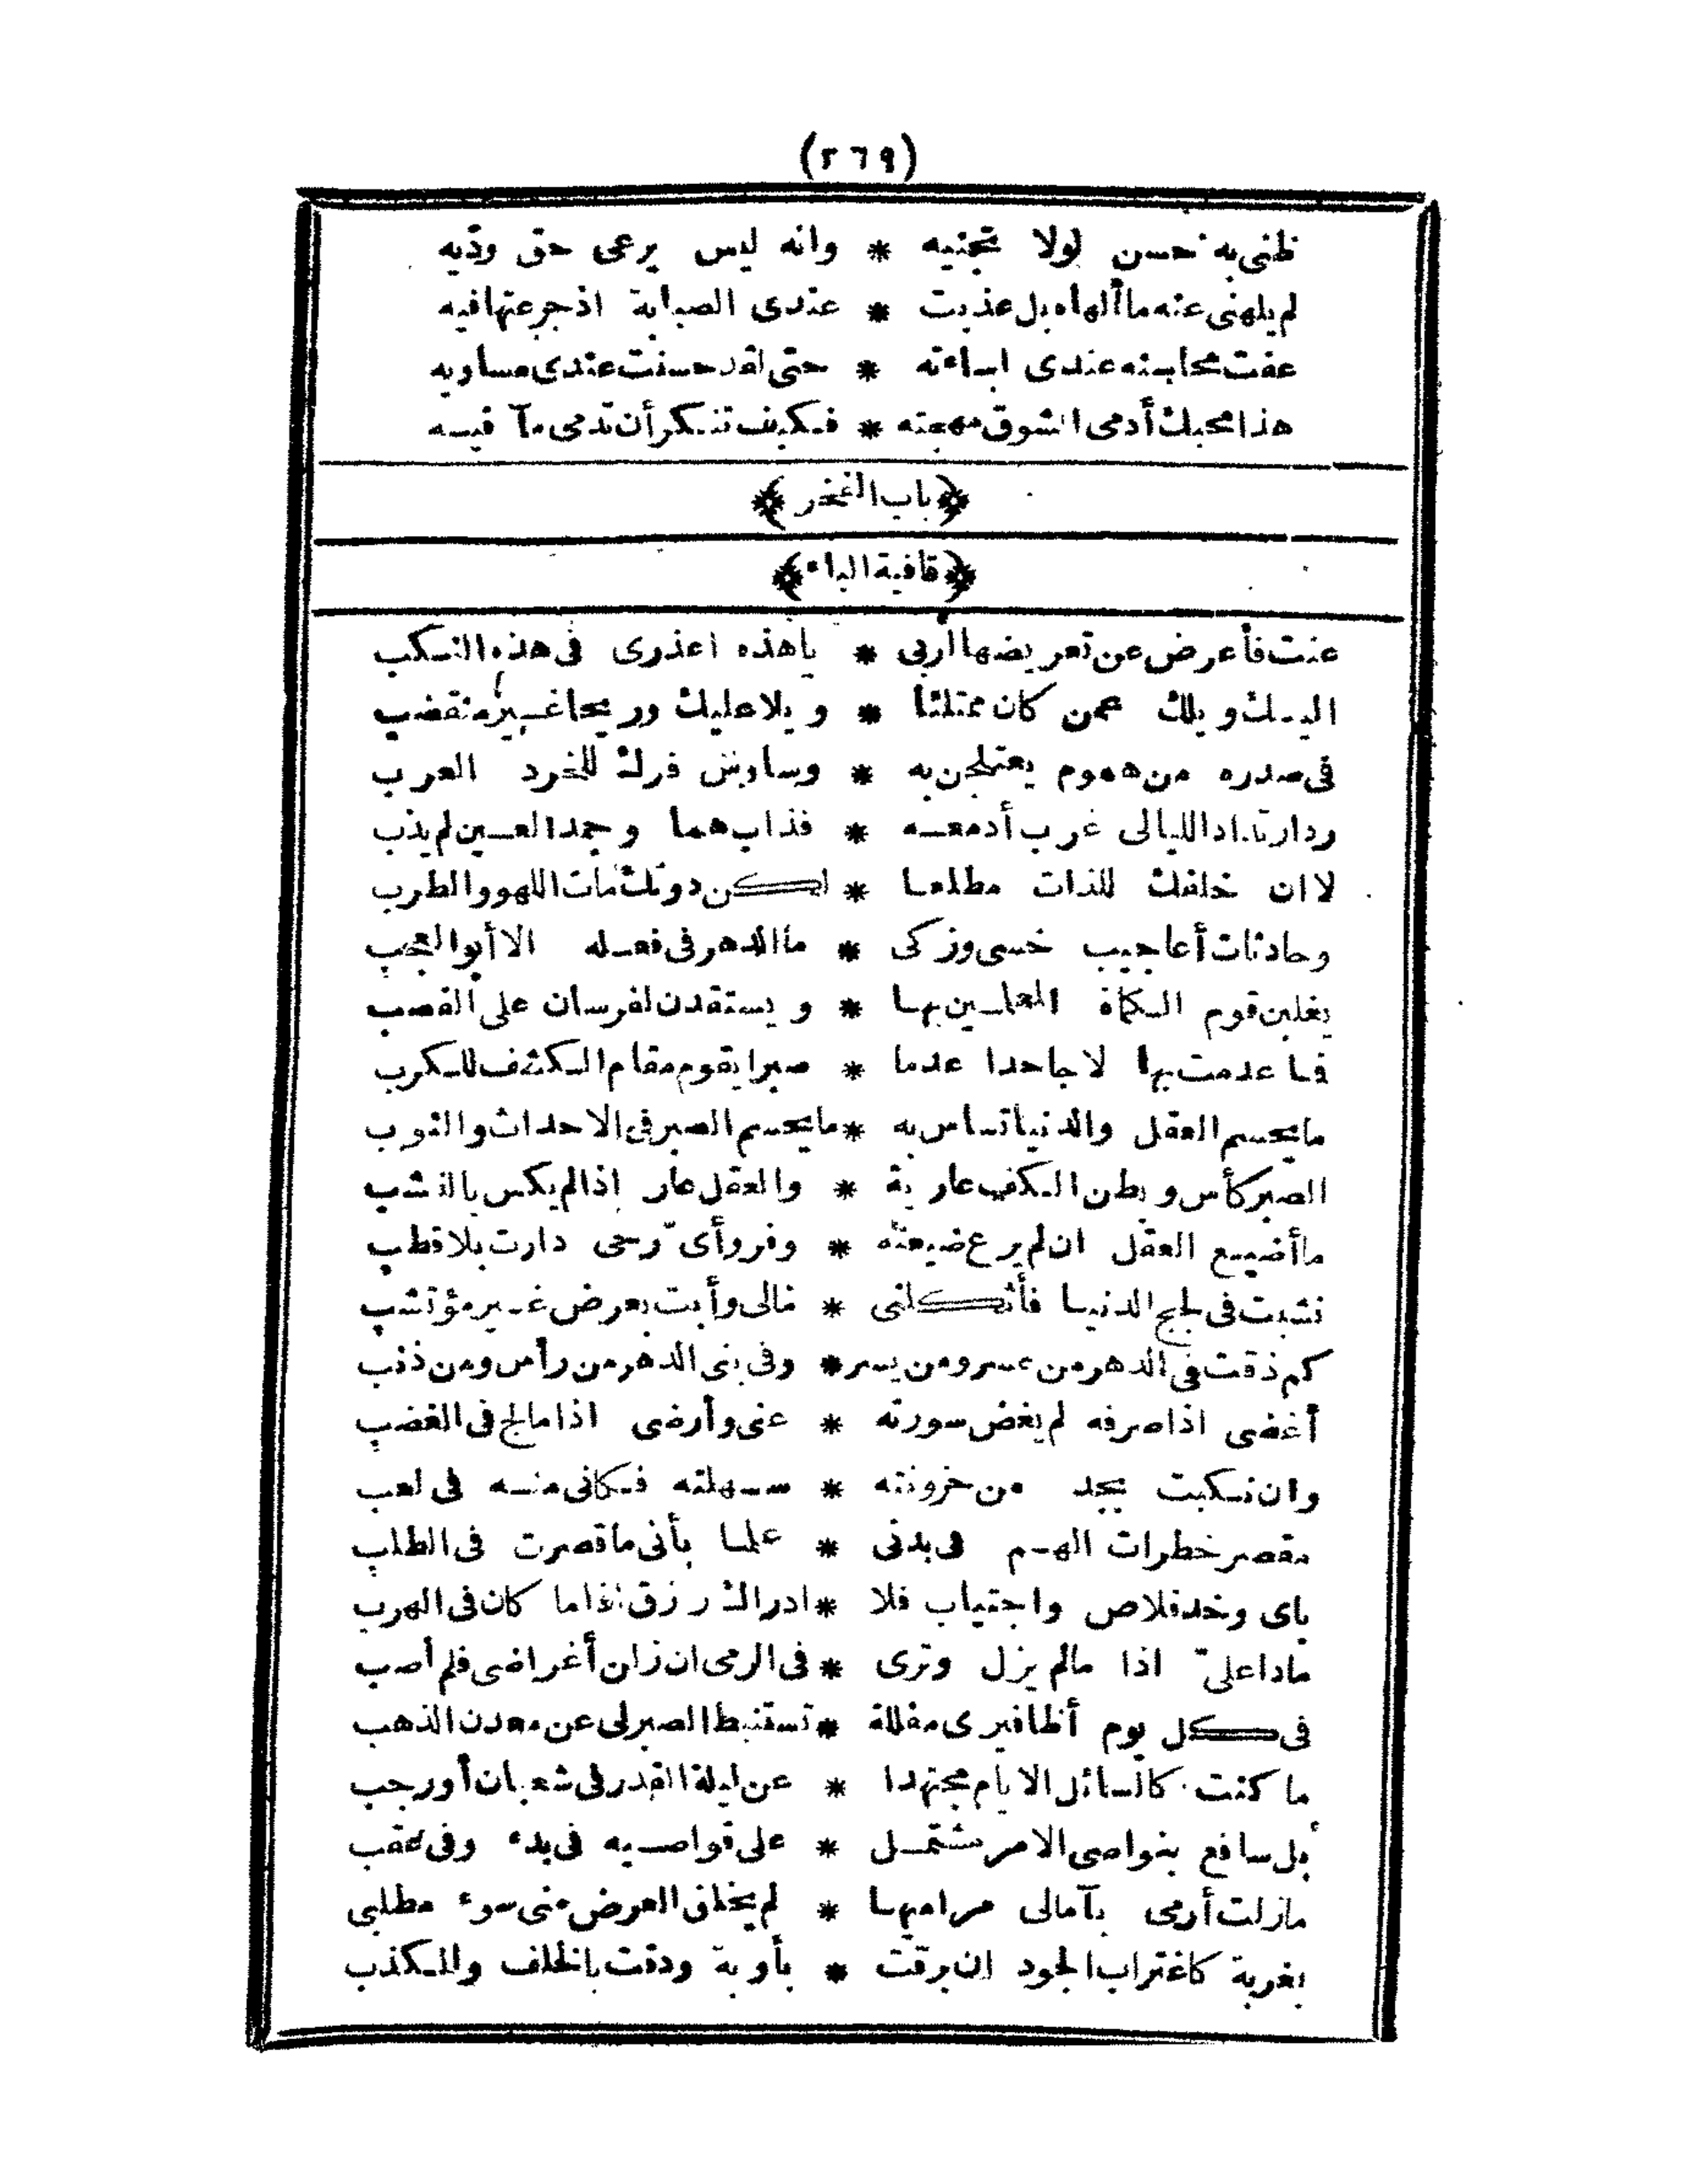 (٢٦٩)
ظنى به حسن لولا تجنيه * وانه ليس يرعى حق وديه
لم يلهنى عنه ما ألهاه بل عذبت * عندى الصبابة اذ جرعتها فيه
عفت محاسنه عندى اساءته * حتى لقد حسنت عندى مساويه
هذا محبك أدمى الشوق مهجته * فكيف تنكر أن تدمى مآ قيه
﴿باب الفخر﴾
﴿قافية الباء﴾
عنت فأعرض عن تعريضها أربى * ياهذه اعذرى فى هذه النكب
اليك ويلك عمن كان ممتلئا * ويلا عليك وريحا غير منقضب
فى صدره من هموم يعتلجن به * وساوس فرك للخرد العرب
رد ارتداد الليالى غرب أدمعه * فذاب هما وجمد العين لم يذب
لا ان خلفك للذات مطلعا * لكن دونك مات اللهو والطرب
وحادثات أعاجيب خسى وزكى * ما الدهر فى فعله الا أبو العجب
يغلبن قوم الكماة المعلمين بها * ويستقدن لفرسان على القصب
فما عدمت بها لا جاحدا عدما * صبرا يقوم مقام الكشف للكرب
ما يحسم العقل والدنيا تساس به * ما يحسم الصبر فى الاحداث والنوب
الصبر كأس وبطن الكف عارية * والعقل عار اذا لم يكس بالنشب
ما أضيع العقل ان لم يرع ضيعته * وفر وأى رحى دارت بلا قطب
نشبت فى لجج الدنيا فأثكلنى * مالى وأبت بعرض غير مؤتشب
كم ذقت فى الدهر من عسر ومن يسر * وفى بنى الدهر من رأس ومن ذنب
أغضى اذا صرفه لم يغض سورته * عنى وأرضى اذا ما لج فى الغضب
وان نكبت بجد من حزونته * سهلته فكانى منه فى لعب
مقصر خطرات الهم فى بدنى * علما بأنى ما قصرت فى الطلب
باى وخد قلاص واجتياب فلا * ادراك رزق اذا ما كان فى الهرب
ماذا على اذا ما لم يزل وترى * فى الرمى ان زان أغراضى فلم أصب
فى كل يوم أظافيرى مفللة * تستنبط الصبر لى عن معدن الذهب
ما كنت كالسائل الايام مجتهدا * عن ليلة القدر فى شعبان أو رجب
بل سافع بنواصى الامر مشتمل * على قواصيه فى بدء وفى عقب
مازلت أرمى بآمالى مراميها * لم يخلق العرض منى سوء مطلبى
بغربة كاغتراب الجود ان برقت * بأوبة ودقت بالخلف والكذب